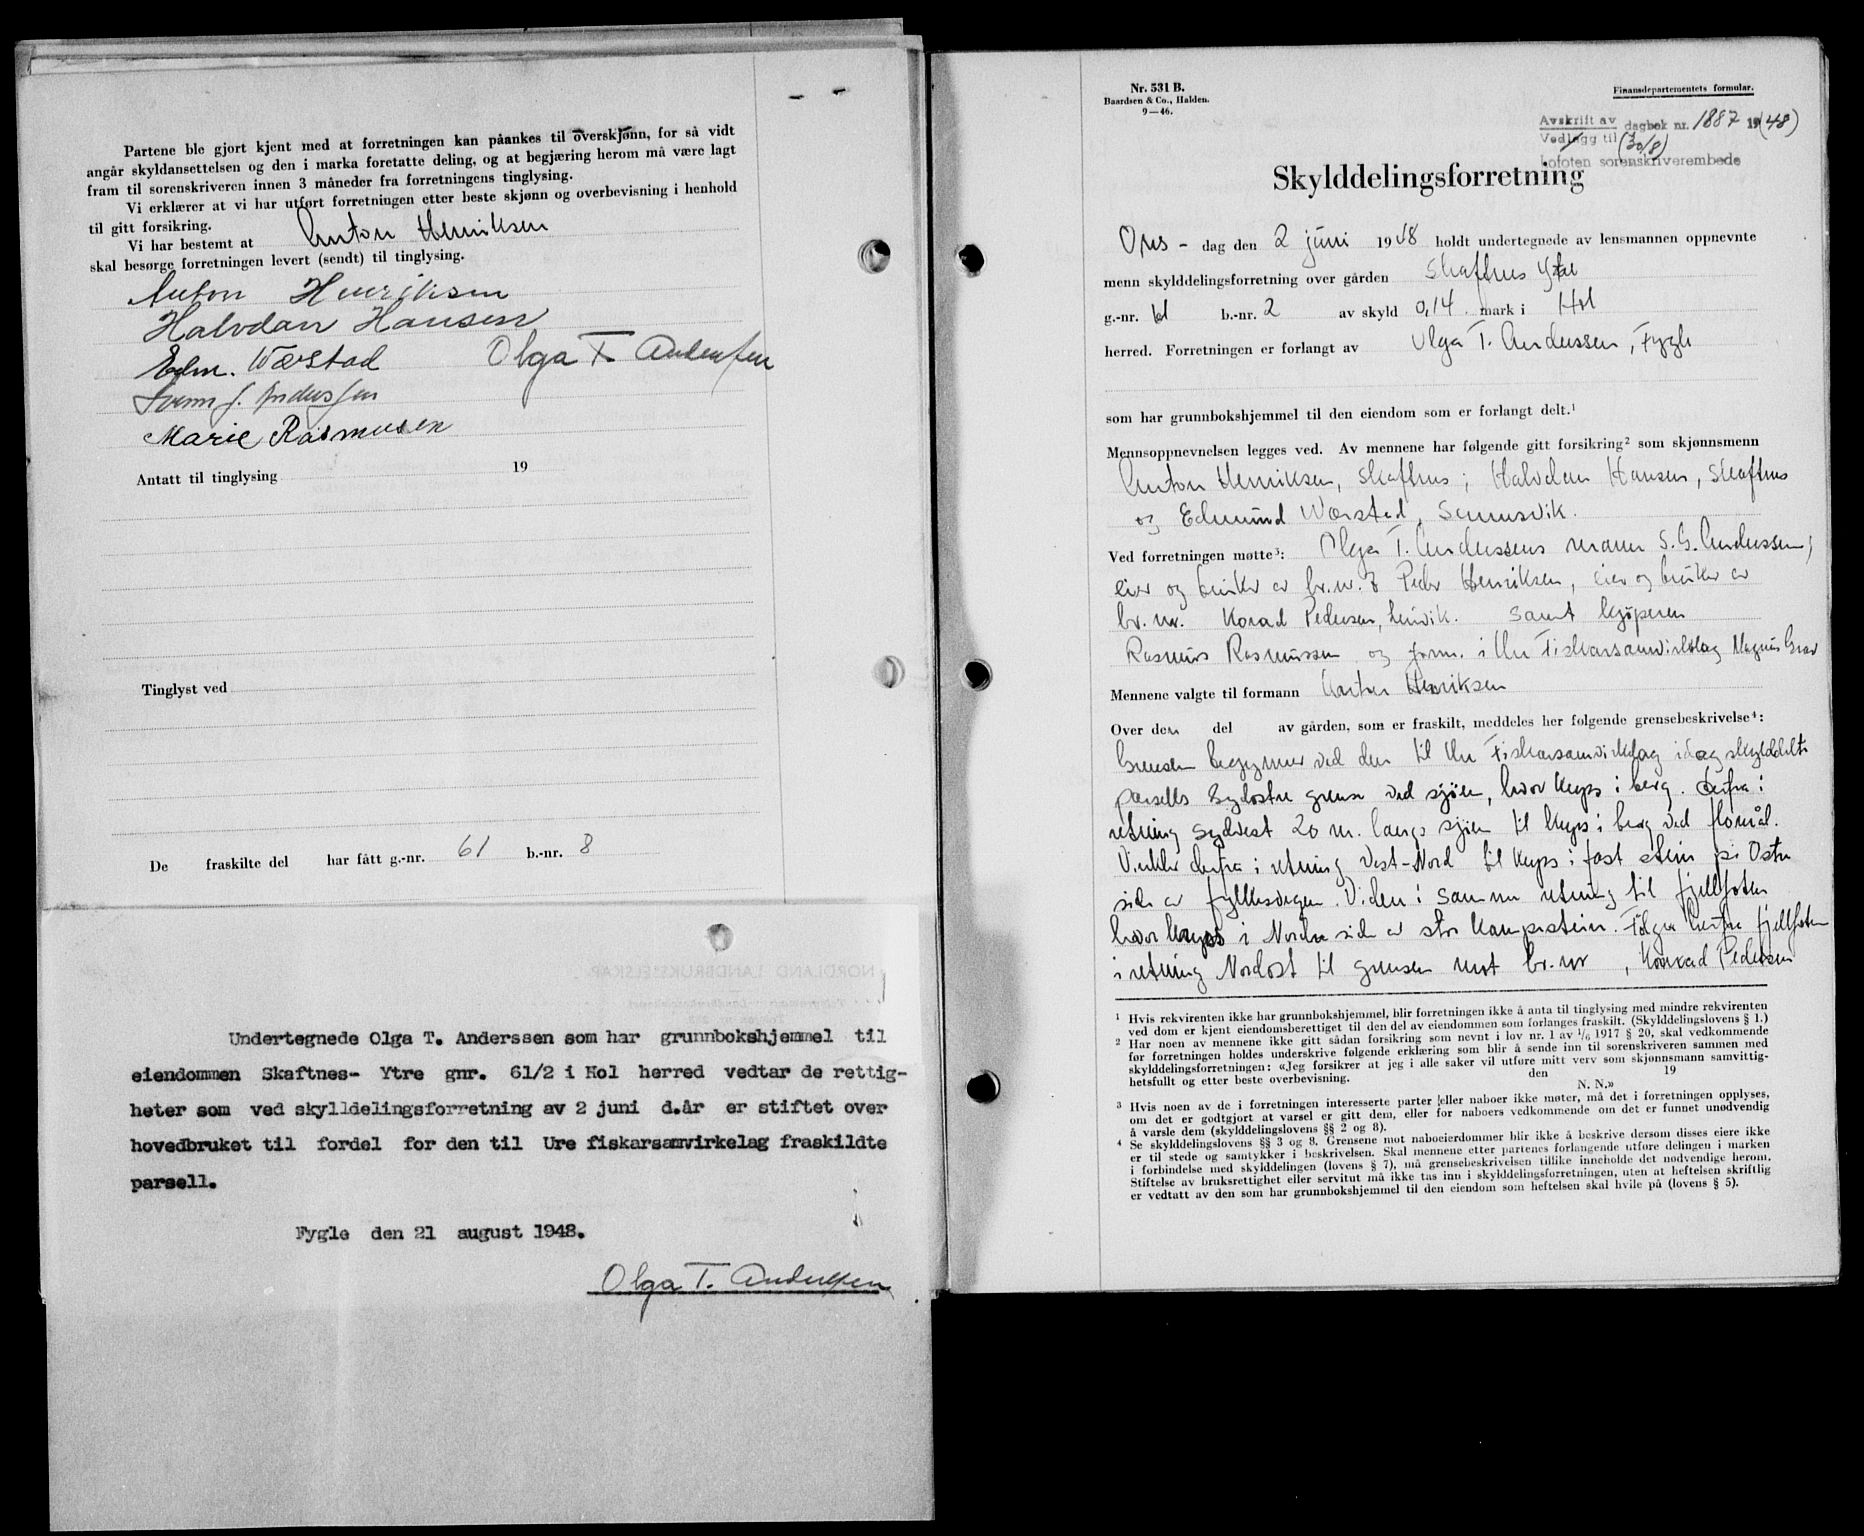 Partene ble gjort kjent med at forretningen kan påankes til overskjønn, for så vidt
angår skyldansettelsen og den i marka foretatte deling, og at begjæring herom må være lagt
fram til sorenskriveren innen 3 måneder fra forretningens tinglysing.
Vi erklærer at vi har utført forretningen etter beste skjønn og overbevisning i henhold
til gitt forsikring.
Vi har bestemt at Anton Henriksen
skal besørge forretningen levert (sendt) til tinglysing.
Anton Henriksen
Halvdan Hansen
Edm. Wærstad Olga T. Anderssen
Marie Rasmussen
Antatt til tinglysing 19
Tinglyst ved
De fraskilte del har fått g.-nr. 61 b.-nr. 8
NORDLAND LANDBRUKSSELSKAP
Undertegnede Olga T. Anderssen som har grunnbokshjemmel til
eiendommen Skaftnes- Ytre gnr. 61/2 i Hol herred vedtar de rettig-
heter som ved skylldelingsforretning av 2 juni d.år er stiftet over
hovedbruket til fordel for den til Ure fiskarsamvirkelag fraskildte
parsell.
Fygle den 21 august 1948.
Olga T. Anderssen
Nr. 531 B.
Baardsen & Co., Halden.
9—46.
Finansdepartementets formular.
Avskrift av dagbok nr. 1887 19(48)
Vedlegg til (30/8)
Lofoten sorenskriverembede
Skylddelingsforretning
Ons - dag den 2 juni 1948 holdt undertegnede av lensmannen oppnevnte
menn skylddelingsforretning over gården Skaftnes Ytre
g.-nr. 61 b.-nr. 2 av skyld 0,14 mark i Hol
herred. Forretningen er forlangt av Olga T. Anderssen, Fygle
som har grunnbokshjemmel til den eiendom som er forlangt delt.¹
Mennsoppnevnelsen legges ved. Av mennene har følgende gitt forsikring² som skjønnsmenn
Anton Henriksen, Skaftnes; Halvdan Hansen, Skaftnes
og Edmund Wærstad, Sennesvik.
Ved forretningen møtte³: Olga T. Anderssens mann S. G. Anderssen,
eier og bruker av br.nr. 3 Peder Henriksen, eier og bruker av
br. nr. Konrad Pedersen, samt kjøperen
Rasmus Rasmussen og form. i Ure Fiskarsamvirkelag Magnus
Mennene valgte til formann Anton Henriksen
Over den del av gården, som er fraskilt, meddeles her følgende grensebeskrivelse⁴:
Grensen begynner ved den til Ure Fiskarsamvirkelag idag skylddelte
parsells Sydostre grense ved sjøen, hvor kryss i berg. derfra i
retning Sydvest 20 m. langs sjøen til kryss i berg ved flomål.
Vinkler derfra i retning Vest-Nord til kryss i fast stein på Ostre
side av fylkesvegen. Viden i samme retning til fjellfoten
hvor kryss i Nordre side av stor kampestein. Følger derfra fjellfoten
i retning Nordost til grensen mot br.nr , Konrad Pedersen
¹ Hvis rekvirenten ikke har grunnbokshjemmel, blir forretningen ikke å anta til tinglysing med mindre rekvirenten
ved dom er kjent eiendomsberettiget til den del av eiendommen som forlanges fraskilt. (Skylddelingslovens § 1.)
² Har noen av mennene ikke gitt sådan forsikring som nevnt i lov nr. 1 av 1/6 1917 § 20, skal vedkommende
før forretningen holdes underskrive følgende erklæring som blir å sende inn til sorenskriveren sammen med
skylddelingsforretningen: «Jeg forsikrer at jeg i alle saker vil utføre mitt verv som skjønnsmann samvittig-
hetsfullt og etter beste overbevisning. den 19
N. N.»
³ Hvis noen av de i forretningen interesserte parter eller naboer ikke møter, må det i forretningen opplyses,
om det er godtgjort at varsel er gitt dem, eller for naboers vedkommende om det er funnet unødvendig
å varsle dem (skylddelingslovens §§ 2 og 8).
⁴ Se skylddelingslovens §§ 3 og 8. Grensene mot naboeierdommer blir ikke å beskrive dersom disses eiere ikke
er til stede og samtykker i beskrivelsen. Skal mennene etter partenes forlangende utføre delingen i marken
i forbindelse med skylddelingen (lovens § 7), må grensebeskrivelsen tillike inneholde det nødvendige herom.
Stiftelse av bruksrettighet eller servitut må ikke tas inn i skylddelingsforretningen, uten at heftelsen skriftlig
er vedtatt av den som har grunnbokshjemmel til den eiendom som heftelsen skal hvile på (lovens § 5).